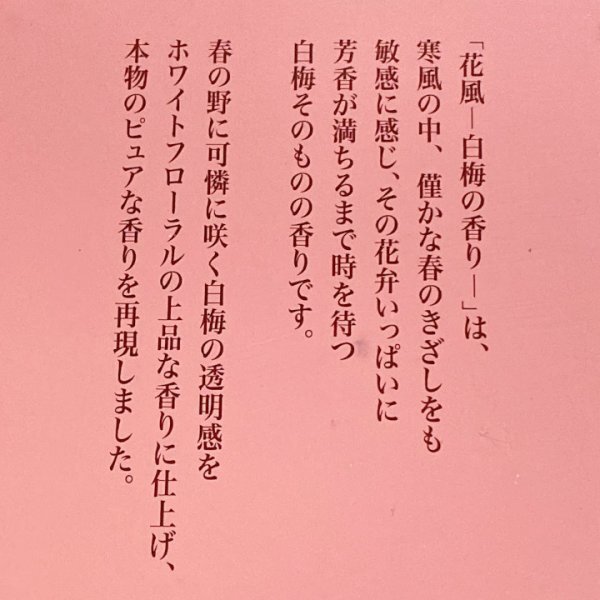 「花風―白梅の香り―」は、
寒風の中、僅かな春のきざしをも
敏感に感じ、その花弁いっぱいに
芳香が満ちるまで時を待つ
白梅そのものの香りです。
春の野に可憐に咲く白梅の透明感を
ホワイトフローラルの上品な香りに仕上げ、
本物のピュアな香りを再現しました。